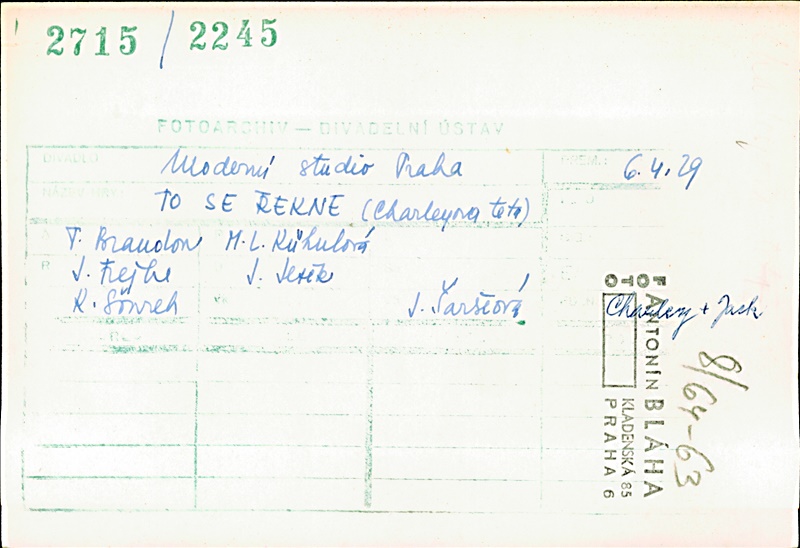 2715 / 2245
FOTOARCHIV — DIVADELNÍ ÚSTAV
DIVADLO Moderní studio Praha PREM.: 6.4.29
NÁZEV HRY: TO SE ŘEKNE (Charleyova teta)
A T. Brandon M. L. Kühnlová
R J. Frejka J. Ježek
K. Šourek J. Šaršeová
Charley + Jack
FOTO ANTONÍN BLÁHA
KLADENSKÁ 85
PRAHA 6
8/64-63